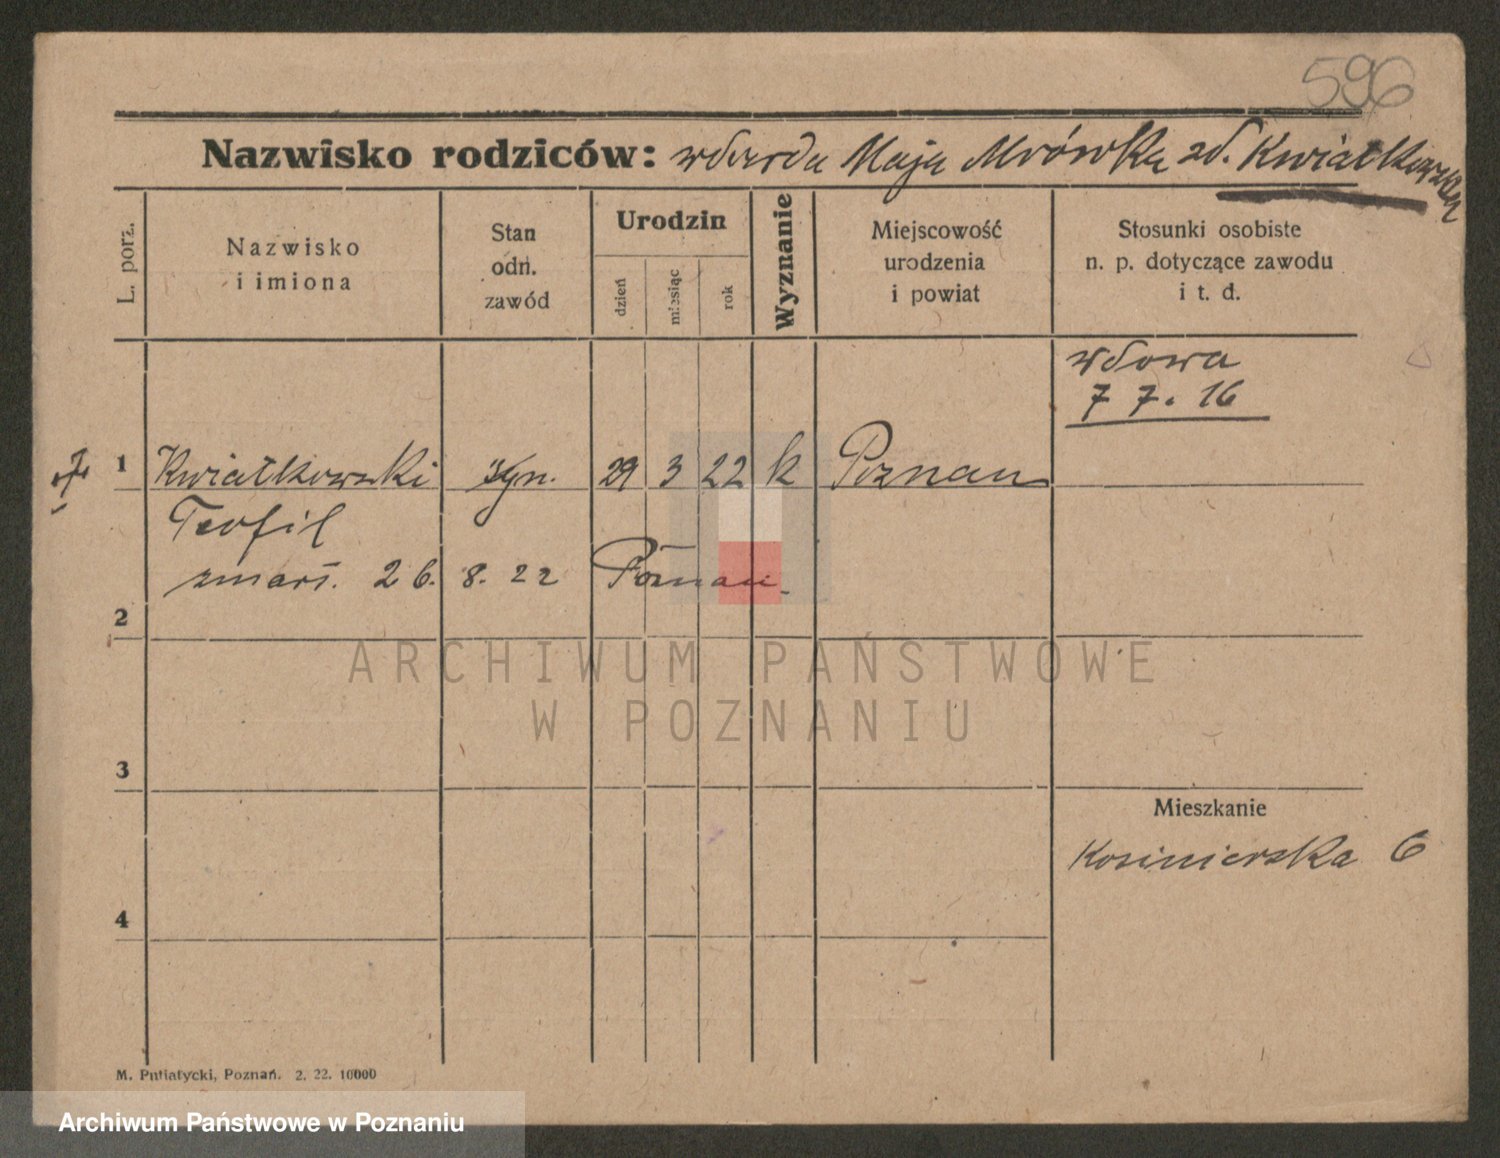 596
Nazwisko rodziców: wdowa Maja Mrówka zd. Kwiatkowska
L. porz.
Nazwisko i imiona
Stan odn. zawód
Urodzin
dzień
miesiąc
rok
Wyznanie
Miejscowość urodzenia i powiat
Stosunki osobiste n. p. dotyczące zawodu i t. d.
wdowa
7 7. 16
1 Kwiatkowski syn. 29 3 22 k Poznan
Teofil
zmarł. 26. 8. 22 Poznan
2
ARCHIWUM PAŃSTWOWE
W POZNANIU
3
Mieszkanie
Kosinierska 6
4
M. Putiatycki, Poznań. 2. 22. 10000
Archiwum Państwowe w Poznaniu